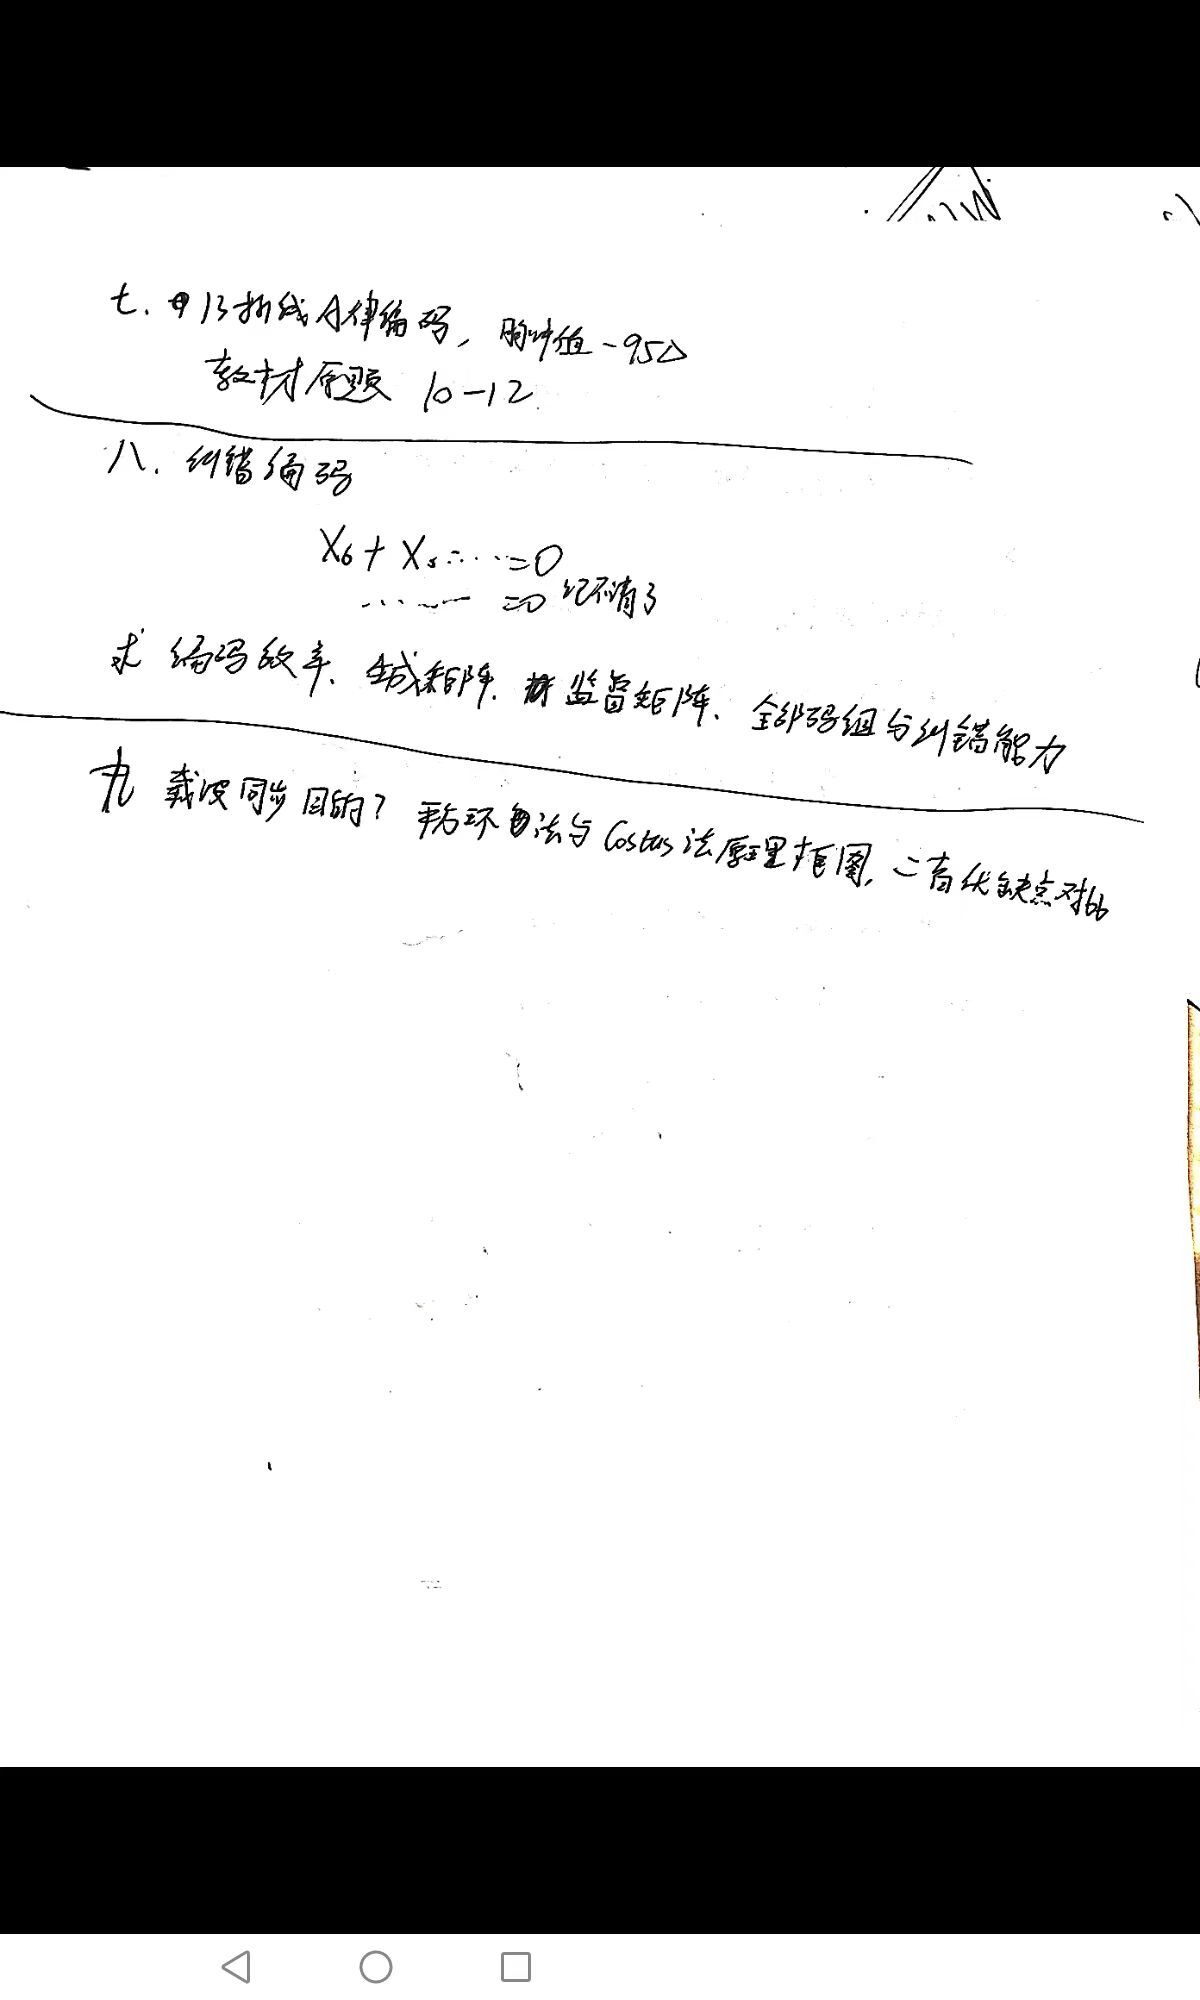 七.中13折线A律编码, 脉冲值-95Δ
教材原题 10-12
八. 纠错编码
X6+X5……=0
……=0 记不清了
求 编码效率、生成矩阵、监督矩阵、全部码组与纠错能力
九 载波同步目的? 平方环法与Costas法原理框图, 二者优缺点对比